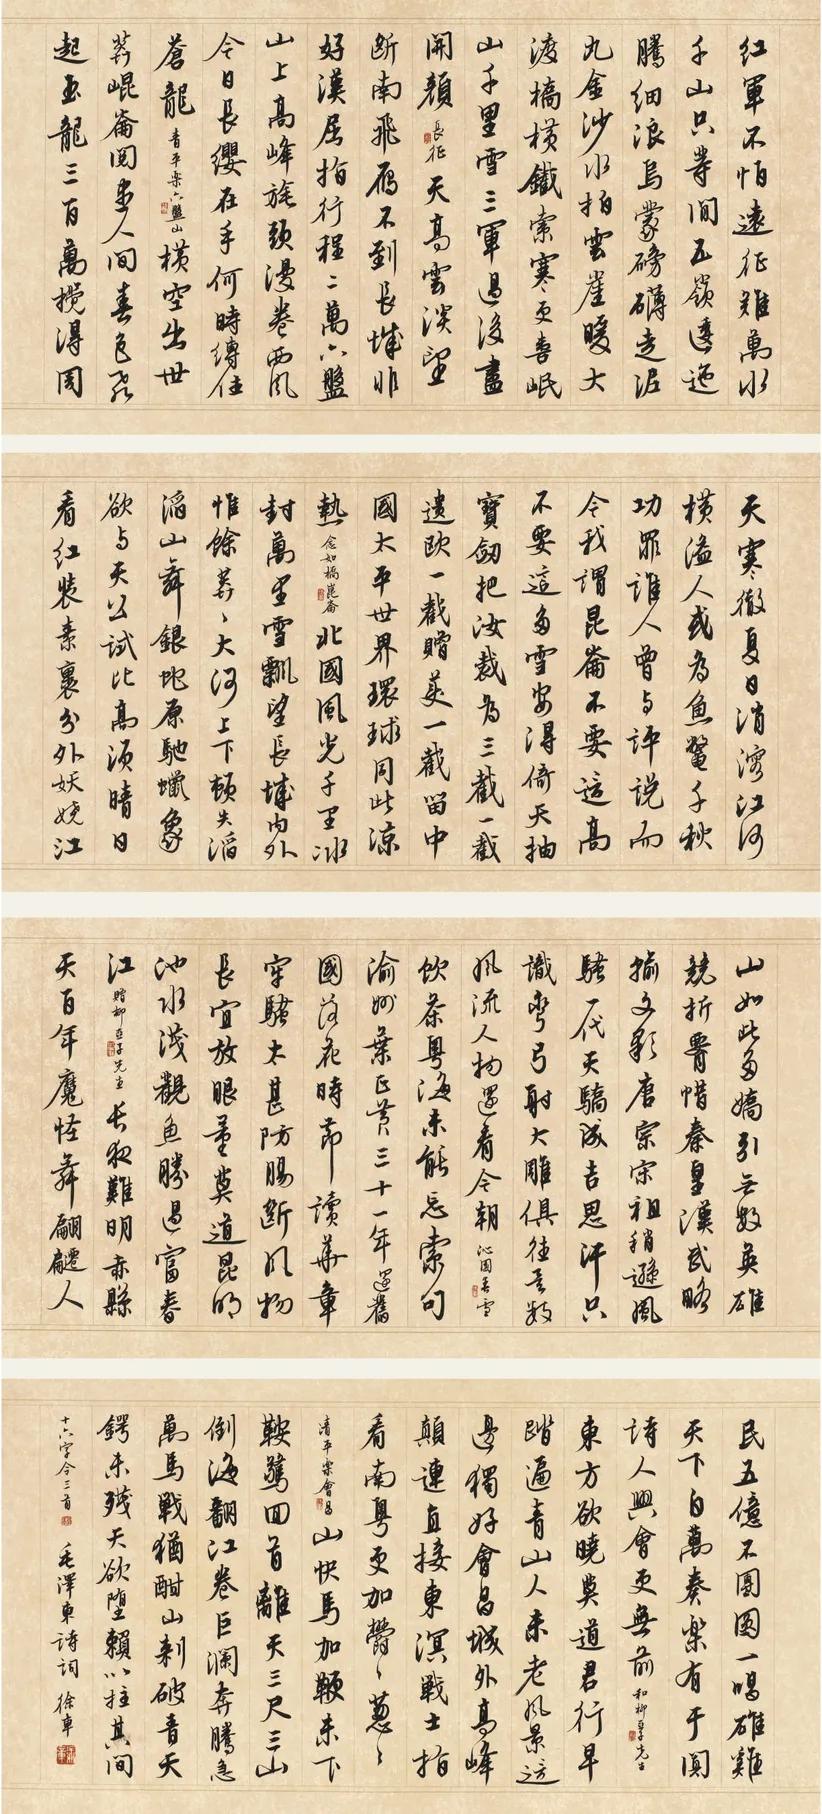 紅軍不怕遠征難萬水
千山只等閒五嶺逶迤
騰細浪烏蒙磅礴走泥
丸金沙水拍雲崖暖大
渡橋橫鐵索寒更喜岷
山千里雪三軍過後盡
開顏 長征 天高雲淡望
斷南飛雁不到長城非
好漢屈指行程二萬六盤
山上高峰旄頭漫卷西風
今日長纓在手何時縛住
蒼龍 青平樂六盤山 橫空出世
莽崐崙閱盡人間春色飛
起玉龍三百萬攪得周
天寒徹夏日消溶江河
橫溢人或為魚鱉千秋
功罪誰人曾与評說而
今我謂昆崙不要這高
不要這多雪安得倚天抽
寶劍把汝裁為三截一截
遺歐一截贈美一截留中
國太平世界環球同此涼
熱 念奴嬌崑崙 北國風光千里冰
封萬里雪飄望長城內外
惟餘莽莽大河上下頓失滔
滔山舞銀蛇原馳蠟象
欲与天公試比高須晴日
看紅裝素裹分外妖嬈江
山如此多嬌引無數英雄
競折腰惜秦皇漢武略
輸文彩唐宗宋祖稍遜風
騷一代天驕成吉思汗只
識彎弓射大雕俱往矣數
風流人物還看今朝 沁園春雪
飲茶粵海未能忘索句
渝州葉正黃三十一年還舊
國落花時節讀華章
牢騷太甚防腸斷風物
長宜放眼量莫道昆明
池水淺觀魚勝過富春
江 贈柳亞子先生 長夜難明赤縣
天百年魔怪舞翩躚人
民五億不團圓一唱雄雞
天下白萬奏樂有于闐
詩人興會更無前 和柳亞子先生
東方欲曉莫道君行早
踏遍青山人未老風景這
邊獨好會昌城外高峰
顛連直接東溟戰士指
看南粵更加鬱鬱蔥蔥
清平樂會昌 山快馬加鞭未下
鞍驚回首離天三尺三山
倒海翻江卷巨瀾奔騰急
萬馬戰猶酣山刺破青天
鍔未殘天欲墮賴以拄其間
十六字令三首 毛澤東詩詞 徐軍